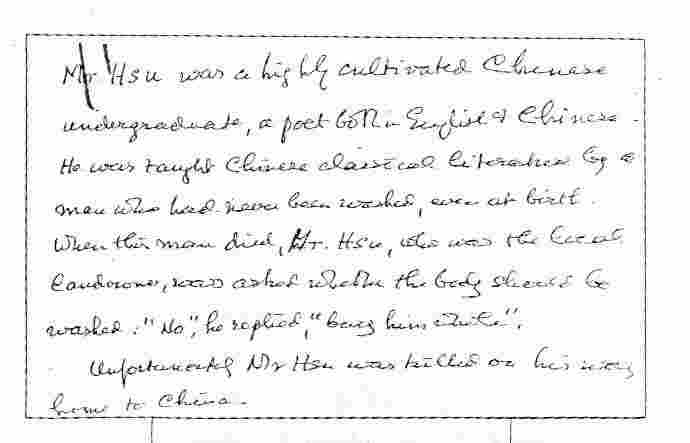 Mr Hsu was a highly cultivated Chinese
undergraduate, a poet both in English & Chinese.
He was taught Chinese classical literature by a
man who had never been washed, even at birth.
When this man died, Mr. Hsu, who was the local
landowner, was asked whether the body should be
washed. "No", he replied, "bury him
Unfortunately Mr Hsu was killed on his way
home to China.